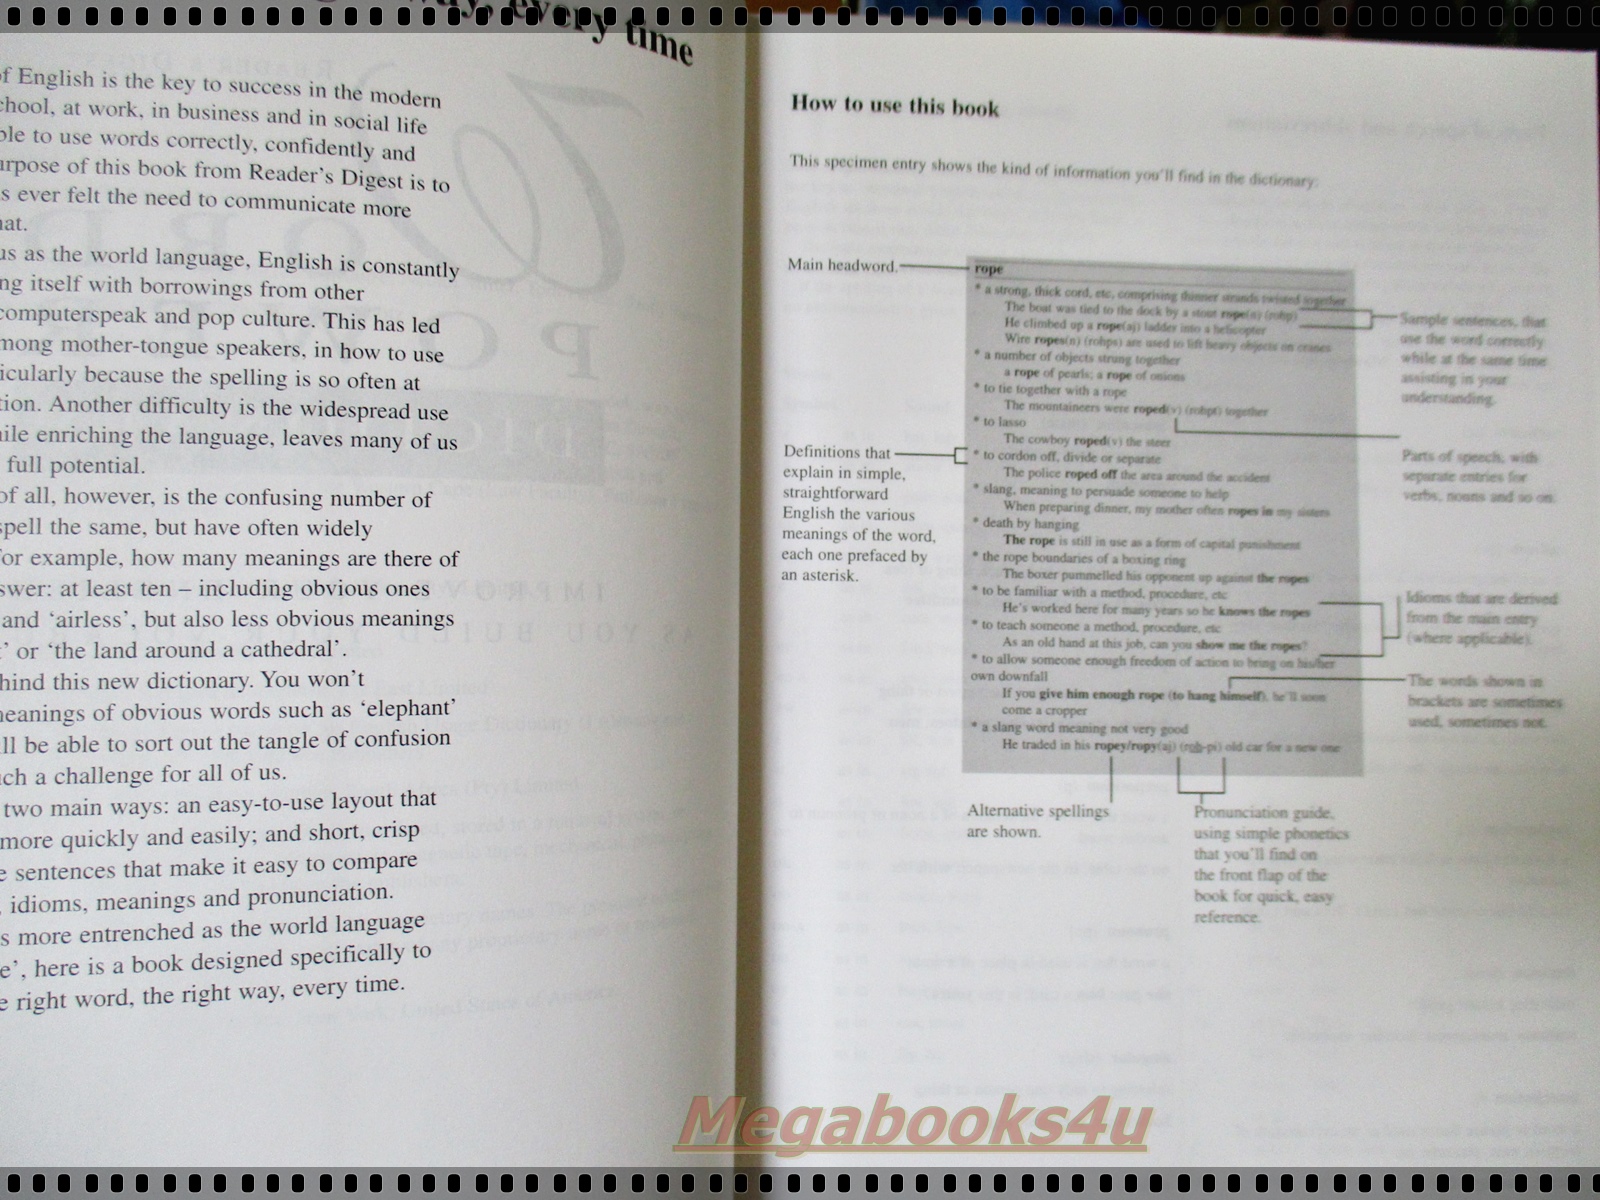 way, every time
of English is the key to success in the modern
chool, at work, in business and in social life
ble to use words correctly, confidently and
urpose of this book from Reader's Digest is to
s ever felt the need to communicate more
hat.
us as the world language, English is constantly
ng itself with borrowings from other
computerspeak and pop culture. This has led
mong mother-tongue speakers, in how to use
icularly because the spelling is so often at
tion. Another difficulty is the widespread use
hile enriching the language, leaves many of us
full potential.
of all, however, is the confusing number of
spell the same, but have often widely
for example, how many meanings are there of
swer: at least ten – including obvious ones
and 'airless', but also less obvious meanings
' or 'the land around a cathedral'.
hind this new dictionary. You won't
neanings of obvious words such as 'elephant'
ll be able to sort out the tangle of confusion
ch a challenge for all of us.
two main ways: an easy-to-use layout that
more quickly and easily; and short, crisp
e sentences that make it easy to compare
, idioms, meanings and pronunciation.
s more entrenched as the world language
e', here is a book designed specifically to
e right word, the right way, every time.
How to use this book
This specimen entry shows the kind of information you'll find in the dictionary:
Main headword.
rope
* a strong, thick cord, etc, comprising thinner strands twisted together
The boat was tied to the dock by a stout rope(n) (rohp)
He climbed up a rope(aj) ladder into a helicopter
Wire ropes(n) (rohps) are used to lift heavy objects on cranes
* a number of objects strung together
a rope of pearls; a rope of onions
* to tie together with a rope
The mountaineers were roped(v) (rohpt) together
* to lasso
The cowboy roped(v) the steer
* to cordon off, divide or separate
The police roped off the area around the accident
* slang, meaning to persuade someone to help
When preparing dinner, my mother often ropes in my sisters
* death by hanging
The rope is still in use as a form of capital punishment
* the rope boundaries of a boxing ring
The boxer pummelled his opponent up against the ropes
* to be familiar with a method, procedure, etc
He's worked here for many years so he knows the ropes
* to teach someone a method, procedure, etc
As an old hand at this job, can you show me the ropes?
* to allow someone enough freedom of action to bring on his/her
own downfall
If you give him enough rope (to hang himself), he'll soon
come a cropper
* a slang word meaning not very good
He traded in his ropey/ropy(aj) (roh-pi) old car for a new one
Definitions that
explain in simple,
straightforward
English the various
meanings of the word,
each one prefaced by
an asterisk.
Sample sentences, that
use the word correctly
while at the same time
assisting in your
understanding.
Parts of speech, with
separate entries for
verbs, nouns and so on.
Idioms that are derived
from the main entry
(where applicable).
The words shown in
brackets are sometimes
used, sometimes not.
Alternative spellings
are shown.
Pronunciation guide,
using simple phonetics
that you'll find on
the front flap of the
book for quick, easy
reference.
Megabooks4u